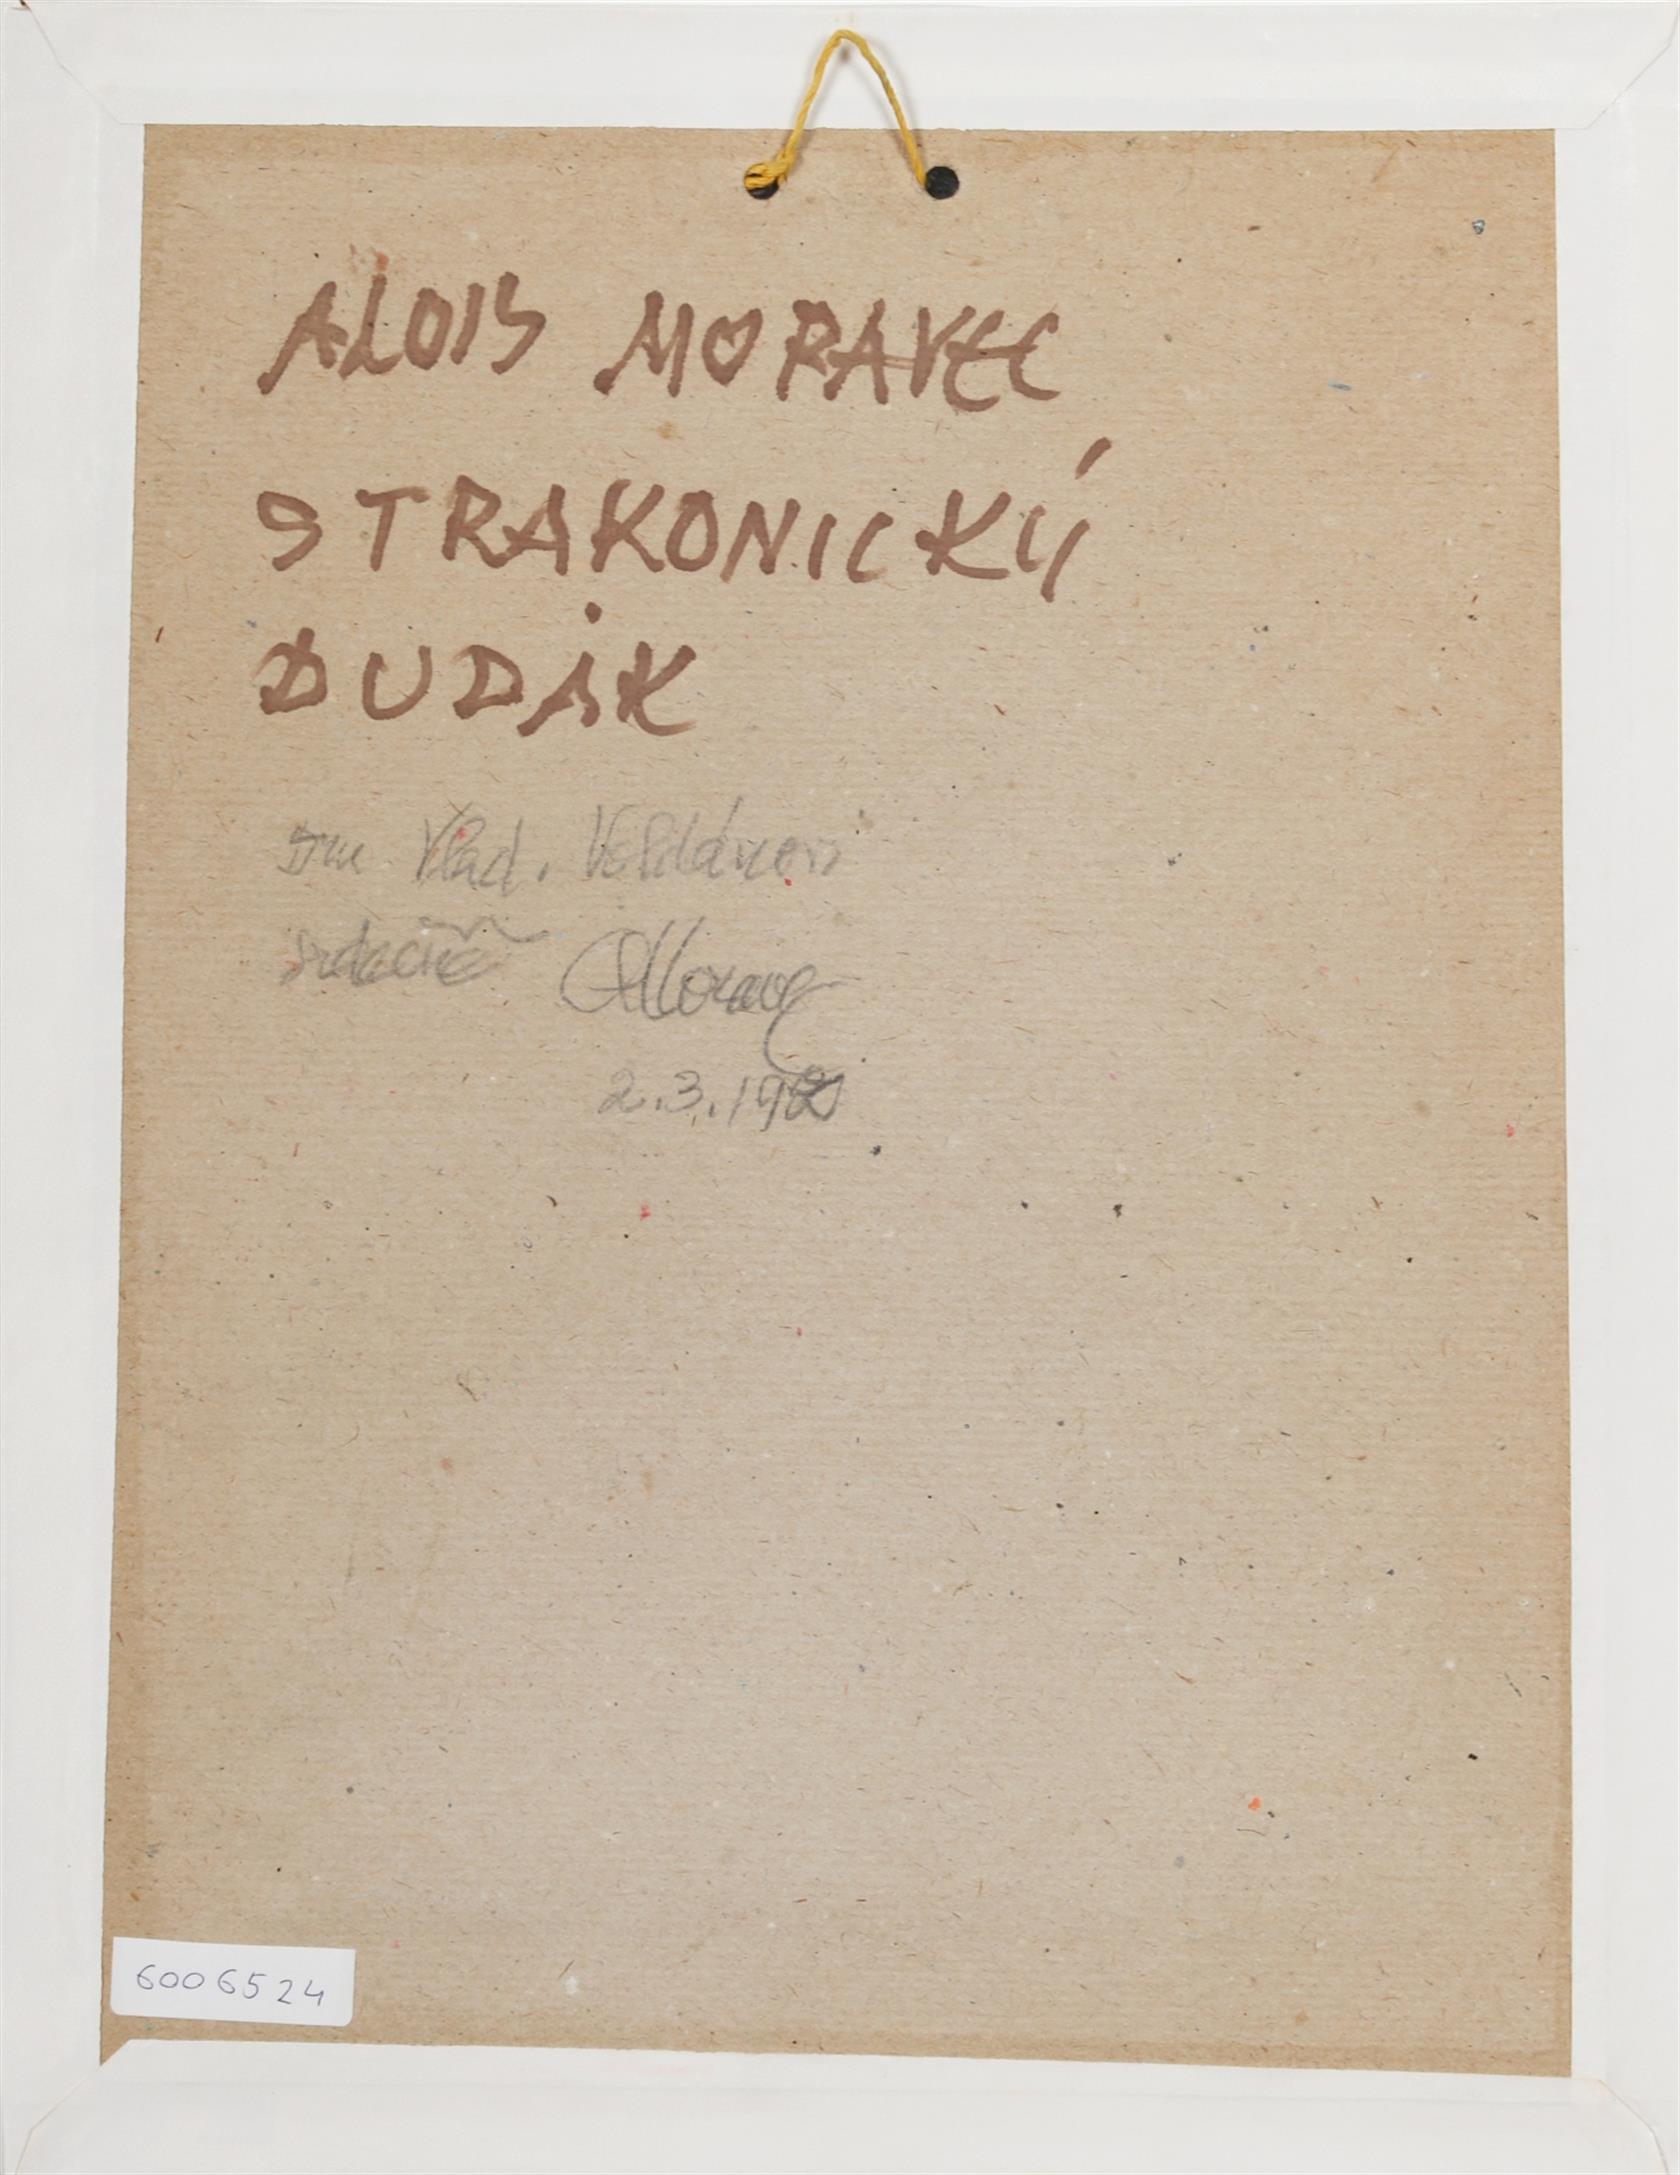 ALOIS MORAVEC
STRAKONICKÝ
DUDÁK
Vlad. Voldánovi
srdečně AMoravec
2.3.19
6006524